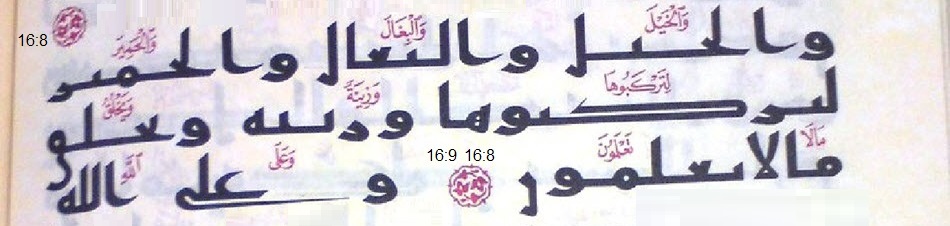 وَالْخَيْلَ وَالْبِغَالَ وَالْحَمِيرَ
16:8
والخيل والبغال والحمير
لِتَرْكَبُوهَا وَزِينَةً وَيَخْلُقُ
لتركبوها وزينه ويخلق
مَالَا تَعْلَمُونَ وَعَلَى اللَّهِ
16:9 16:8
مالا تعلمون وعلى الله